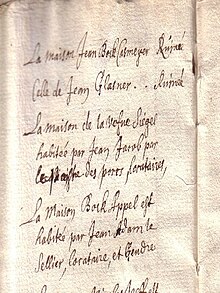 La maison Jean Bock Casmeyer Ruinée
Celle de Jean Glasner . . Ruinée
La maison de la vefue
habitée par Jean Jacob par
des pores locataires,
La Maison Bock Appel est
habitée par Jean Adam le
Sellier, locataire, et Gendre